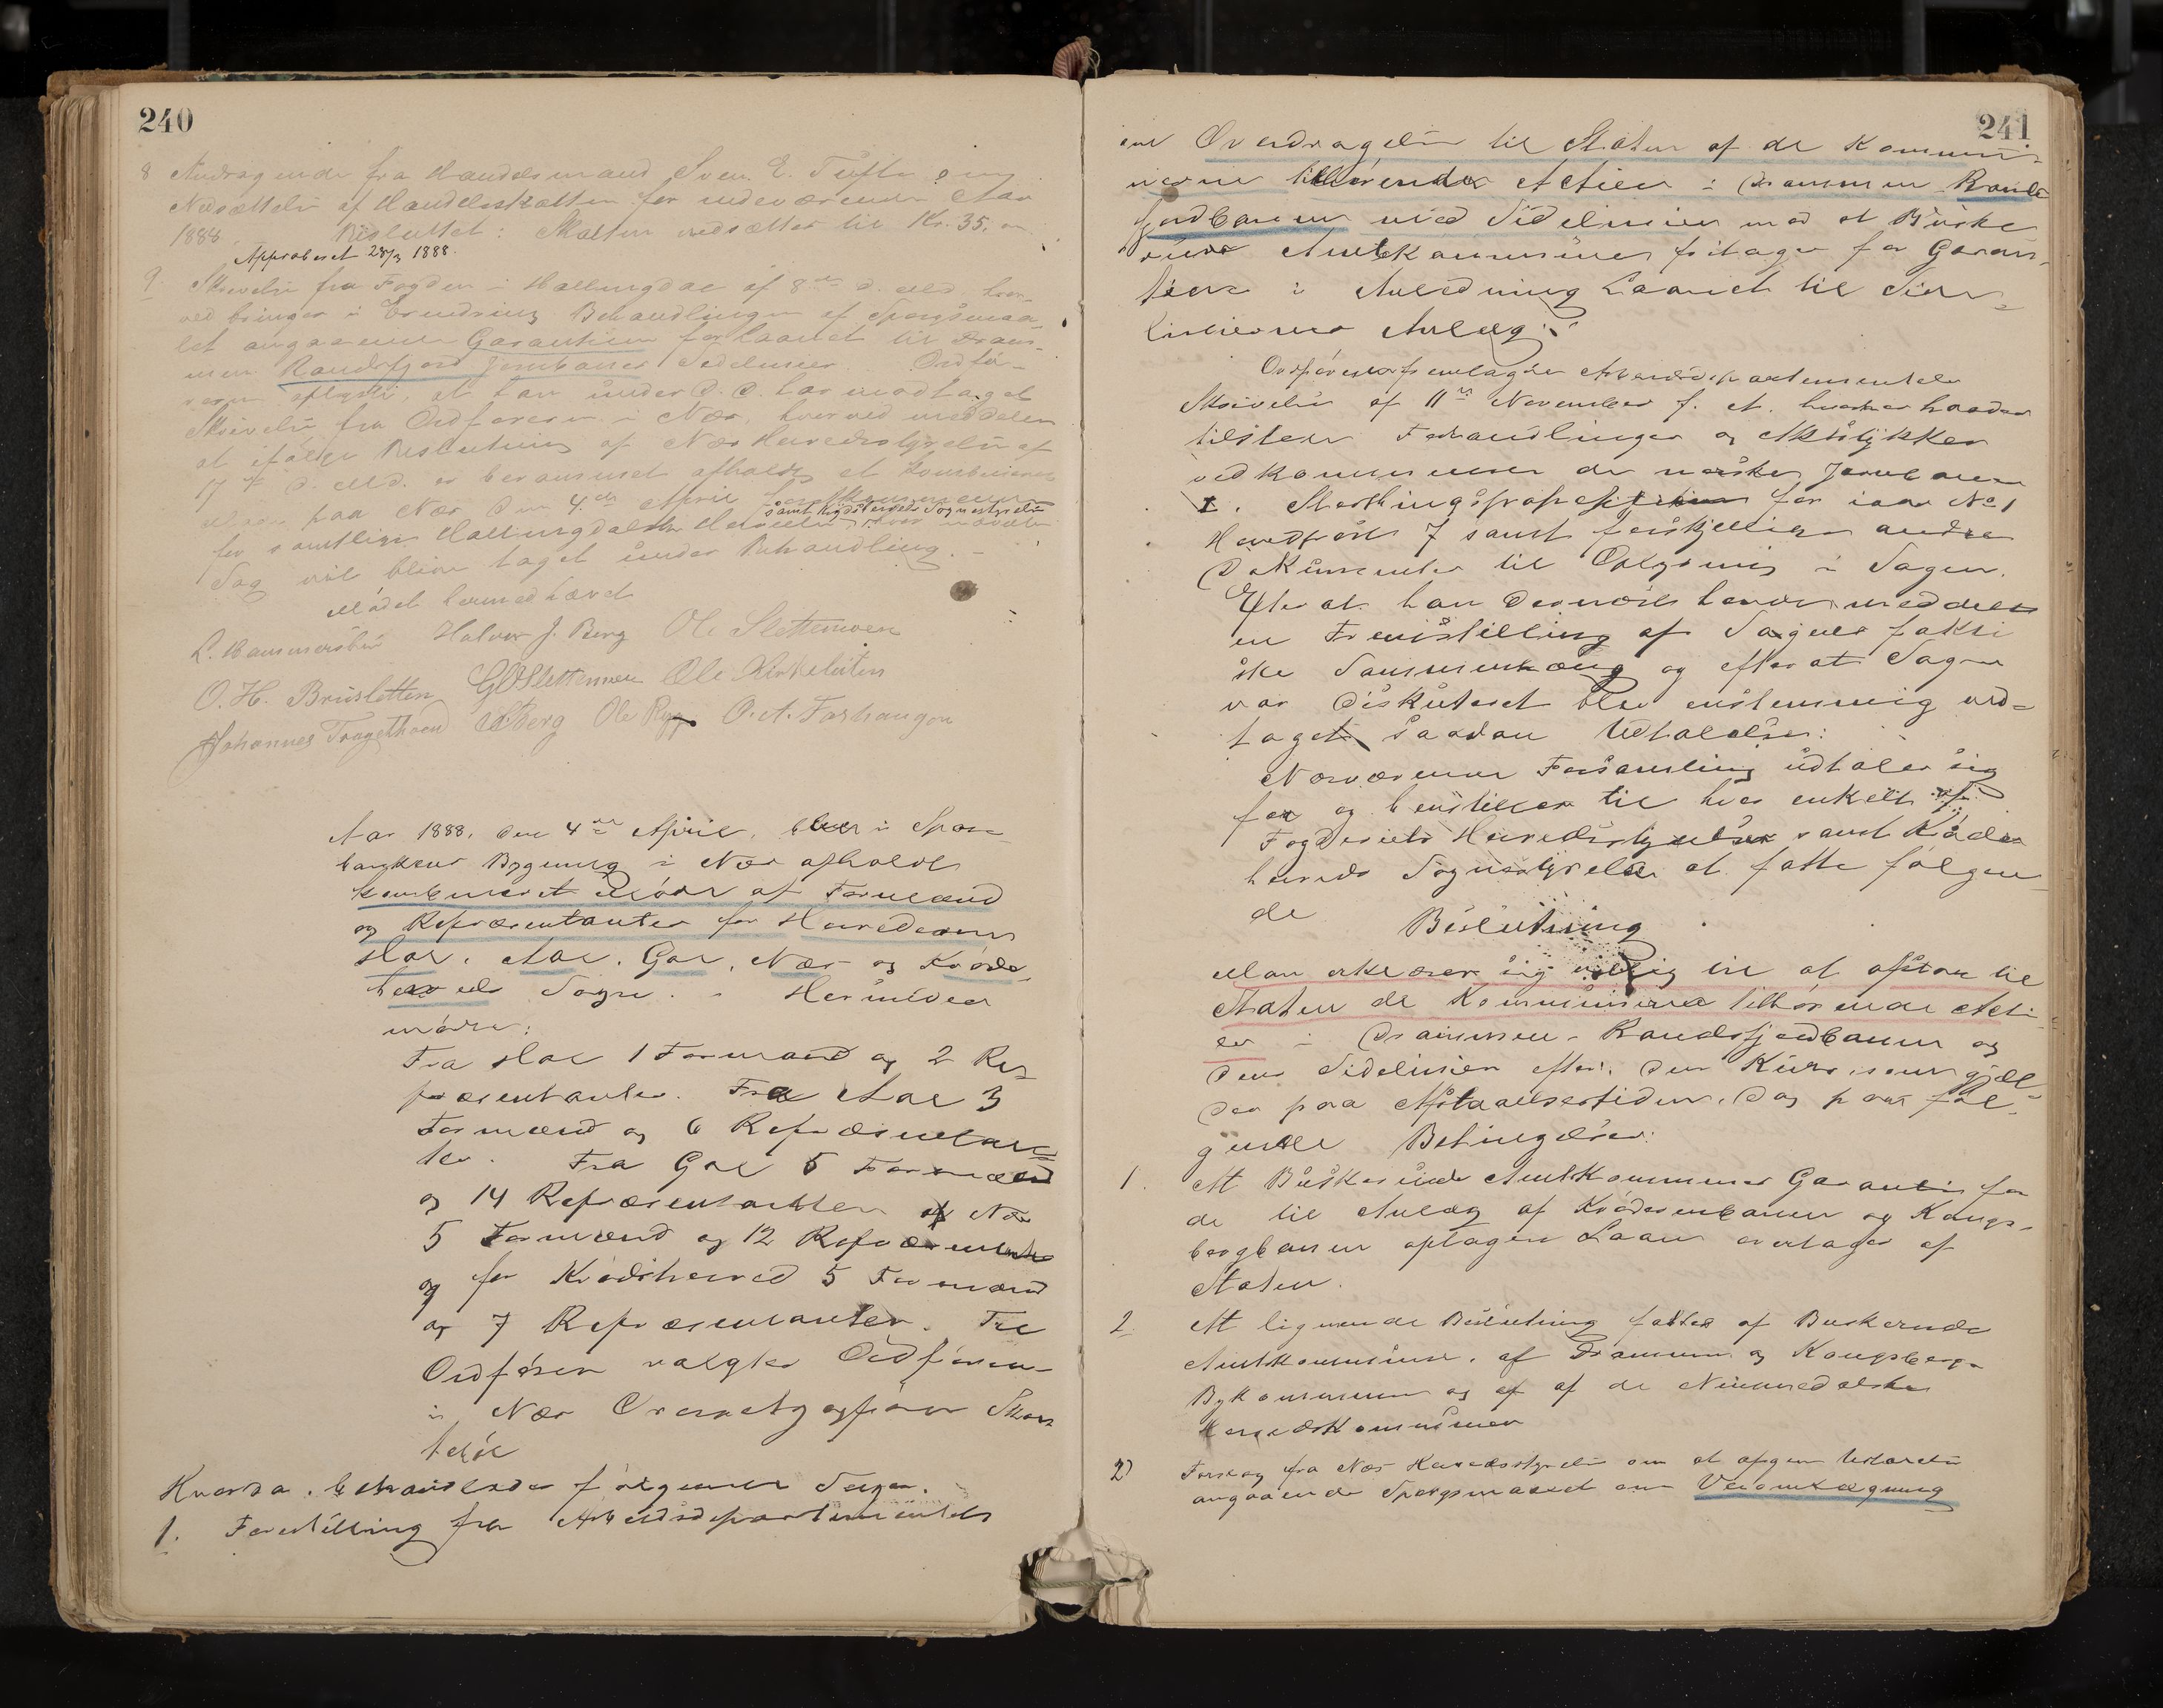 240
8 Andragende fra Handelsmand Sven E. Tufte om
Nedsættelse af Handelsskatten for indeværende Aar
1888. Besluttet: Skatten nedsættes til Kr. 35,00
Approberet 28/3 1888.
9. Skrivelse fra Fogden i Hallingdal af 8de d. Md. hvor-
ved bringes i Erindring Behandlingen af Spørgsmaa-
let angaaende Garantien for Laanet til Dram-
men Randsfjord Jernbanes Sidelinier. Ordfø-
reren oplyste, at han under D.D. har modtaget
Skrivelse fra Ordføreren i Næs, hvorved meddeles
at ifølge Beslutning af Næs Herredsstyrelse af
17de d. Md. er berammet afholdt et kombineret
paa Næs den 4de April
samt Krødsherreds Sognestyrelse
for samtlige Hallingdalske Herreder, hvor nævnte
Sag vil blive taget under Behandling. -
Mødet hermed hævet
L. Hammersbøe Halvor J. Berg Ole Slettemoen
O. H. Brusletten G O Slettemoen Ole Kirkeluten
Johannes Tragethoen Berg Ole Rygg O. A. Farhaugen
Aar 1888, den 4de April, blev i Spare-
bankens Bygning i Næs afholdt
kombineret Møde af Formænd
og Repræsentanter for Herrederne
Hol, Aal, Gol, Næs og Krøds-
herreds Sogne. - Herunder
mødte:
Fra Hol 1 Formand og 2 Re-
præsentanter. Fra Aal 3
Formænd og 6 Repræsentan-
ter. Fra Gol 5 Formænd
og 14 Repræsentanter af Næs
5 Formænd og 12 Repræsentanter
og for Krødsherred 5 Formænd
og 7 Repræsentanter. Til
Ordfører valgtes Ordføreren
i Næs Overretssagfører
Hvorda behandledes følgende Sager.
1. Forestilling fra Arbeidsdepartementets
241
om Overdragelse til Staten af de Kommu-
nerne tilhørende Actier i Drammen Rands-
fjordbanen med Sidelinier mod at Buske-
ruds Amtskommune fritages for Garan-
tien i Anledning Laanet til Side-
liniernes Anlæg.
Ordføreren fremlagde Arbeidsdepartementets
Skrivelse af 11te November f. A. hvorhos
tilstedes Forhandlinger og Aktstykker
vedkommende de norske Jernbaner
I. Storthingsproposition for iaar No 1
Hovedpost 7 samt forskjellige andre
Dokumenter til Oplysning i Sagen.
Efterat han dernæst havde meddelt
en Fremstilling af Sagens fakti-
ske Sammenhæng og efterat Sagen
var diskuteret blev enstemmig ved-
taget saadan Udtalelse:
Nærværende Forsamling udtaler sig
for og henstiller til hver enkelt af
Fogderiets Herredsstyrelser samt Krøds-
herreds Sognestyrelse at fatte følgen-
de Beslutning
Man erklærer sig villig til at afstaa til
Staten de Kommunerne tilhørende Acti-
er i Drammen-Randsfjordbanen og
dens Sidelinier efter den Kurs, som gjæl-
der paa Afstaaelsestiden, dog paa føl-
gende Betingelser:
1. At Buskeruds Amtskommunes Garanti for
de til Anlæg af Krøderenbanen og Kongs-
bergbanen optagne Laan overtages af
Staten.
2. At lignende Beslutning fattes af Buskeruds
Amtskommune, af Drammens og Kongsbergs
Bykommuner og af af de Numedalske
Herredskommuner
2) Forslag fra Næs Herredsstyrelse om at afgive Udtalelse
angaaende Spørgsmaalet om Veiomlægning